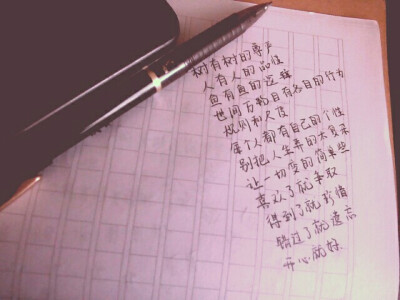 树有树的尊严
人有人的品性
鱼有鱼的逻辑
世间万物自有各目的行为
规则和尺度
每个人都有自己的个性
别把人生弄的太复杂
让一切变的简单些
喜欢了就争取
得到了就珍惜
错过了就遗忘
开心就好